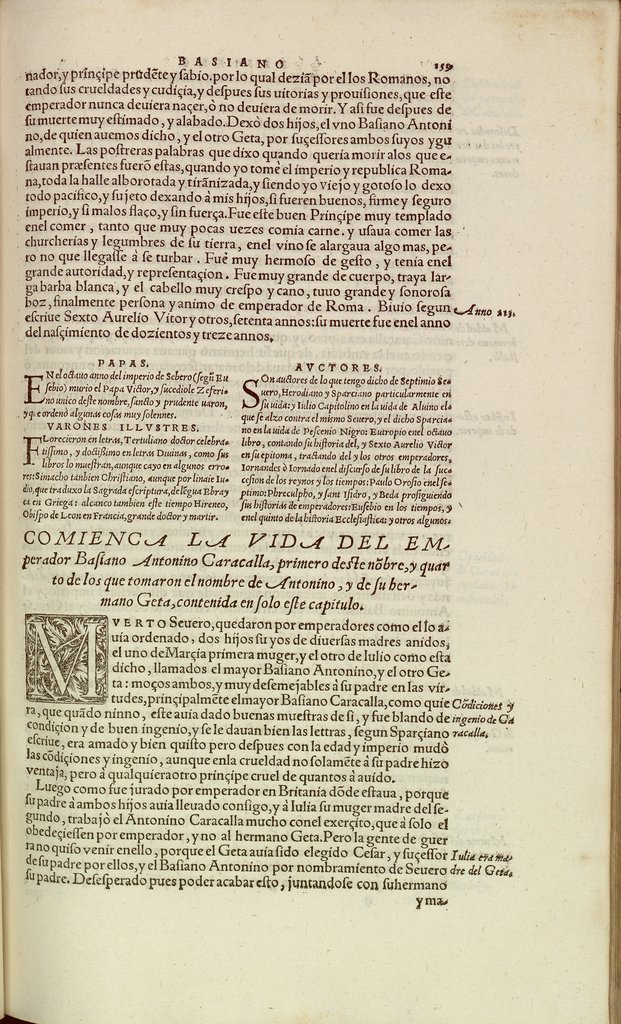 BASIANO
159
nador, y prinçipe prudẽte y sabio. por lo qual dezia͂ por el los Romanos, no
tando sus crueldades y cudiçia, y despues sus uitorias y prouisiones, que este
emperador nunca deuiera naçer, ò no deuiera de morir. Y asi fue despues de
su muerte muy estimado, y alabado. Dexò dos hijos, el vno Basiano Antoni
no, de quien auemos dicho, y el otro Geta, por suçessores ambos suyos ygu
almente. Las postreras palabras que dixo quando queria morir alos que e-
stauan præsentes fuerõ estas, quando yo tomè el imperio y republica Roma-
na, toda la halle alborotada y tirãnizada, y siendo yo viejo y gotoso lo dexo
todo pacifico, y sujeto dexando à mis hijos, si fueren buenos, firme y seguro
imperio, y si malos flaco, y sin fuerça. Fue este buen Prinçipe muy templado
enel comer, tanto que muy pocas uezes comia carne. y usaua comer las
churcherias y legumbres de su tierra, enel vino se alargaua algo mas, pe-
ro no que llegasse à se turbar. Fuè muy hermoso de gesto, y tenia enel
grande autoridad, y representaçion. Fue muy grande de cuerpo, traya lar-
ga barba blanca, y el cabello muy crespo y cano, tuuo grande y sonorosa
boz, finalmente persona y animo de emperador de Roma. Biuio segun
escriue Sexto Aurelio Vitor y otros, setenta annos: su muerte fue enel anno
del nasçimiento de dozientos y treze annos.
Anno 213.
PAPAS.
EN el octauo anno del imperio de Sebero (segũ Eu
sebio) murio el Papa Victor, y sucediole Zeferi-
no unico deste nombre, sancto y prudente uaron,
y que ordenò algunas cosas muy solennes.
VARONES ILLVSTRES.
FLorecieron en letras, Tertuliano doctor celebra-
tissimo, y doctissimo en letras Diuinas, como sus
libros lo muestran, aunque cayo en algunos erro-
res: Simacho tanbien Christiano, aunque por linaie Iu-
dio, que traduxo la Sagrada escriptura, de lẽgua Ebray
ca en Griega: alcanco tambien este tiempo Hireneo,
Obispo de Leon en Francia, grande doctor y martir.
AVCTORES.
SOn auctores de lo que tengo dicho de Septimio Se-
uero, Herodiano y Sparciano particularmente en
su uida: y Iulio Capitolino en la uida de Aluino el-
que se alzo contra el mismo Seuero, y el dicho Sparcia-
no en la uida de Pescenio Nigro: Eutropio enel octauo
libro, contando su historia del, y Sexto Aurelio Victor
en su epitoma, tractando del y los otros emperadores,
Iornandes ò Iornado enel discurso de su libro de la suc-
cesion de los reynos y los tiempos: Paulo Orosio enel se-
ptimo: Phreculpho, y sant Isidro, y Beda prosiguiendo
sus historias de emperadores: Eusebio en los tiempos, y
enel quinto de la historia Ecclesiastica: y otros algunos.
COMIENCA LA VIDA DEL EM-
perador Basiano Antonino Caracalla, primero deste nõbre, y quar
to de los que tomaron el nombre de Antonino, y de su her-
mano Geta, contenida en solo este capitulo.
MVERTO Seuero, quedaron por emperadores como el lo a-
uia ordenado, dos hijos suyos de diuersas madres anidos,
el uno de Março primera muger, y el otro de Iulio como esta
dicho, llamados el mayor Basiano Antonino, y el otro Ge-
ta: moços ambos, y muy desemejables à su padre en las vir-
tudes, prinçipalmẽte el mayor Basiano Caracalla, como quie
ra, que quãdo ninno, este auia dado buenas muestras de si, y fue blando de
condiçion y de buen ingenio, y se le dauan bien las letras, segun Sparçiano
escriue, era amado y bien quisto pero despues con la edad y imperio mudò
las cõdiçiones y ingenio, aunque enla crueldad no solamẽte à su padre hizo
ventaja, pero à qualquiera otro prinçipe cruel de quantos à auido.
Cõdiciones y
ingenio de Ca
racalla.
Luego como fue jurado por emperador en Britania dõde estaua, porque
su padre à ambos hijos auia lleuado consigo, y à Iulia su muger madre del se-
gundo, trabajò el Antonino Caracalla mucho conel exerçito, que à solo el
obedeçiessen por emperador, y no al hermano Geta. Pero la gente de guer
ra no quiso venir enello, porque el Geta auia sido elegido Cesar, y suçessor
de su padre por ellos, y el Basiano Antonino por nombramiento de Seuero
su padre. Desesperado pues poder acabar esto, juntandose con su hermano
Iulia era ma-
dre del Geta.
y ma-